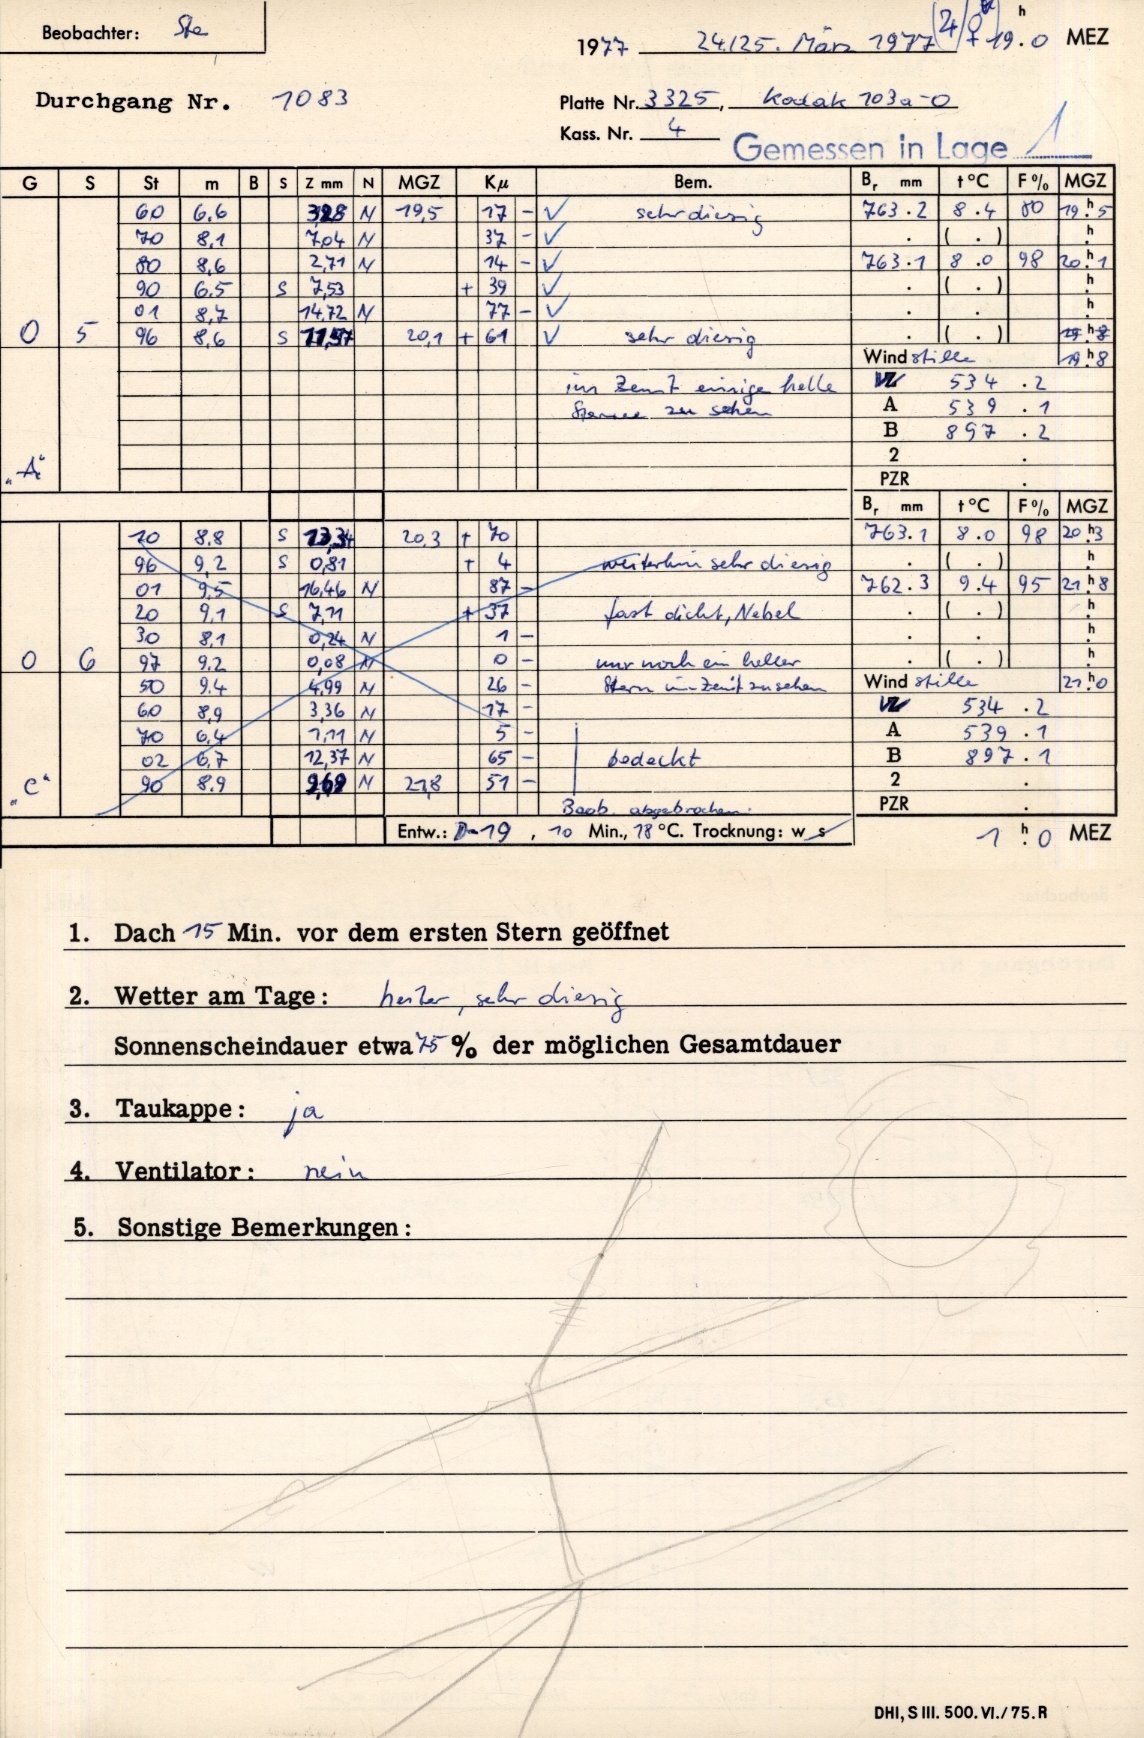 Beobachter: Ste
1977 24./25. März 1977 (♃/♀) 19.ʰ0 MEZ
Durchgang Nr. 1083
Platte Nr. 3325, Kodak 103a-O
Kass. Nr. 4
Gemessen in Lage 1
G S St m B S Z mm N MGZ Kμ Bem. Bᵣ mm t °C F% MGZ
60 6,6 3,28 N 19,5 17 - √ sehr diesig 763.2 8.4 80 19.ʰ5
70 8,1 7,04 N 37 - √ . ( . ) ʰ.
80 8,6 2,71 N 14 - √ 763.1 8.0 98 20.ʰ1
90 6.5 S 7,53 + 39 √ . ( . ) ʰ.
01 8,7 14,72 N 77 - √ . . ʰ.
0 5 96 8,6 S 11,57 20,1 + 61 √ sehr diesig . ( . ) 19.ʰ8
Wind stille 19.ʰ8
im Zenit einige helle VZ 534.2
Sterne zu sehen A 539.1
B 897.2
"A" 2 .
PZR .
Bᵣ mm t °C F% MGZ
10 8,8 S 13,34 20,3 + 70 763.1 8.0 98 20.ʰ3
96 9,2 S 0,81 + 4 weiterhin sehr diesig . ( . ) ʰ.
01 9,5 16,46 N 87 - 762.3 9.4 95 21.ʰ8
20 9,1 S 7,11 + 37 fast dicht, Nebel . ( . ) ʰ.
30 8,1 0,24 N 1 - . . ʰ.
0 6 97 9,2 0,08 N 0 - nur noch ein heller . ( . ) ʰ.
50 9.4 4,99 N 26 - Stern im Zenit zu sehen Wind stille 21.ʰ0
60 8,9 3,36 N 17 - VZ 534.2
70 6,4 1,11 N 5 - A 539.1
02 6,7 12,37 N 65 - bedeckt B 897.1
"C" 90 8.9 9,69 N 21,8 51 - 2 .
Beob. abgebrochen. PZR .
Entw.: D-19, 10 Min., 18 °C. Trocknung: w s 1.ʰ0 MEZ
1. Dach 15 Min. vor dem ersten Stern geöffnet
2. Wetter am Tage: heiter, sehr diesig
Sonnenscheindauer etwa 75 % der möglichen Gesamtdauer
3. Taukappe: ja
4. Ventilator: nein
5. Sonstige Bemerkungen:
DHI, S III. 500. VI./75. R